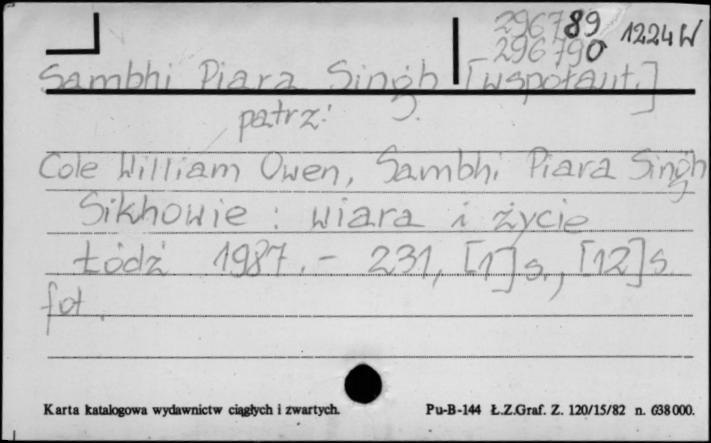 296789 1224W
296790
Sambhi Piara Singh [współaut.]
patrz:
Cole William Owen, Sambhi Piara Singh
Sikhowie : wiara i życie
Łódź 1987. - 231, [1] s., [12] s.
fot.
Karta katalogowa wydawnictw ciągłych i zwartych. Pu-B-144 Ł.Z.Graf. Z. 120/15/82 n. 638000.